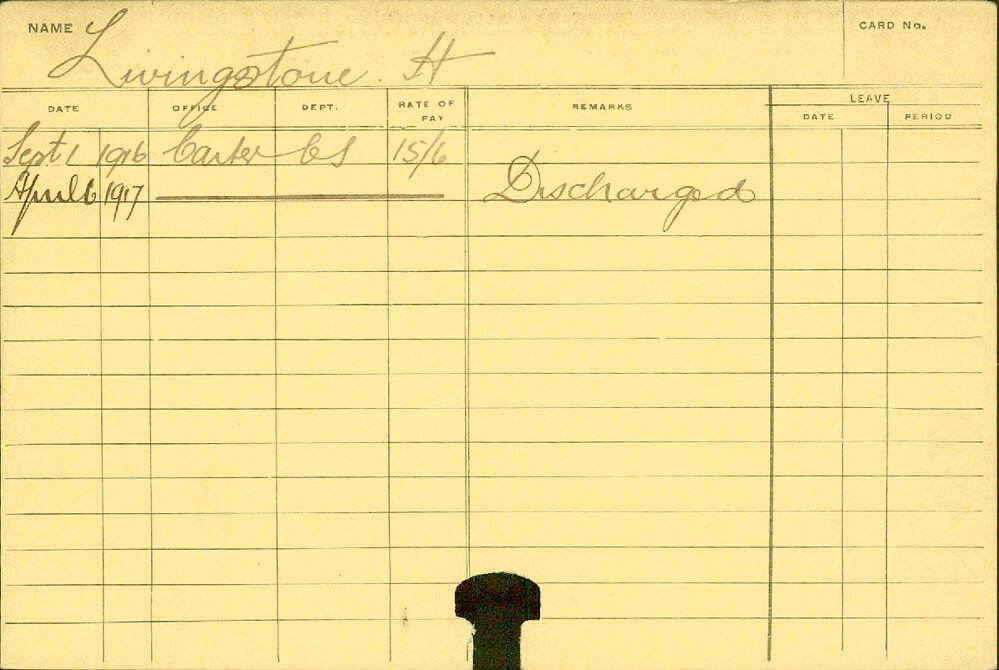 NAME Livingstone. H CARD No.
DATE OFFICE DEPT. RATE OF PAY REMARKS LEAVE
DATE PERIOD
Sept 1 1916 Carter CS 15/6
April 6 1917 Discharged